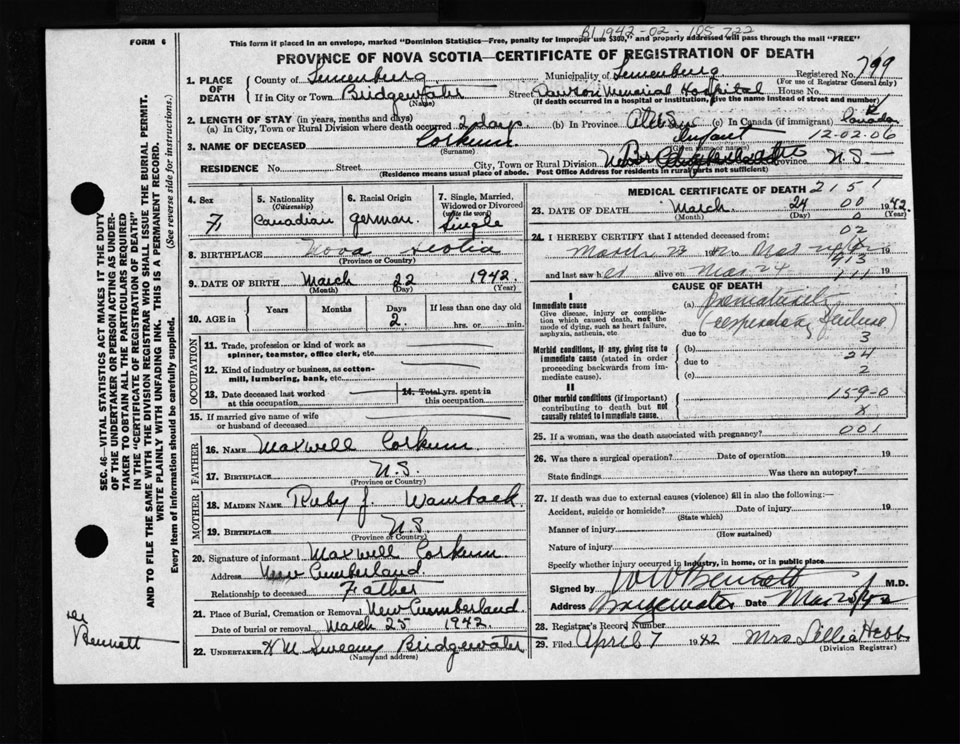 B1 1942-02-105-722
FORM 6
This form if placed in an envelope, marked "Dominion Statistics—Free, penalty for improper use $300," and properly addressed will pass through the mail "FREE"
PROVINCE OF NOVA SCOTIA—CERTIFICATE OF REGISTRATION OF DEATH
1. PLACE OF DEATH
County of Lunenburg Municipality of Lunenburg Registered No. 799
(For use of Registrar General only)
If in City or Town Bridgewater Street Dawson Memorial Hospital House No.
(Name) (If death occurred in a hospital or institution, give the name instead of street and number)
2. LENGTH OF STAY (in years, months and days)
(a) In City, Town or Rural Division where death occurred 2 days (b) In Province (c) In Canada (if immigrant) Canada
3. NAME OF DECEASED Corkum Infant 12-02-06
(Surname) (Given name or names)
RESIDENCE No. Street City, Town or Rural Division Province N.S.
(Residence means usual place of abode. Post Office Address for residents in rural parts not sufficient)
4. Sex F.
5. Nationality (Citizenship) Canadian
6. Racial Origin german.
7. Single, Married, Widowed or Divorced (write the word) Single
8. BIRTHPLACE Nova Scotia
(Province or Country)
9. DATE OF BIRTH March 22 1942.
(Month) (Day) (Year)
10. AGE in Years Months Days 2. If less than one day old hrs. or min.
OCCUPATION
11. Trade, profession or kind of work as spinner, teamster, office clerk, etc.
12. Kind of industry or business, as cotton-mill, lumbering, bank, etc.
13. Date deceased last worked at this occupation
14. Total yrs. spent in this occupation
15. If married give name of wife or husband of deceased
FATHER
16. NAME Maxwell Corkum
17. BIRTHPLACE N.S.
(Province or Country)
MOTHER
18. MAIDEN NAME Ruby J. Wamback
19. BIRTHPLACE N.S.
(Province or Country)
20. Signature of informant Maxwell Corkum.
Address New Cumberland
Relationship to deceased Father
21. Place of Burial, Cremation or Removal New Cumberland.
Date of burial or removal March 25 1942.
22. UNDERTAKER Sweeny Bridgewater
(Name and address)
MEDICAL CERTIFICATE OF DEATH 2151
23. DATE OF DEATH March 24 00 1942
(Month) (Day) 0
24. I HEREBY CERTIFY that I attended deceased from: 02
March
and last saw her alive on Mar 24 111 19
CAUSE OF DEATH
I
Immediate cause
Give disease, injury or complication which caused death, not the mode of dying, such as heart failure, asphyxia, asthenia, etc.
(a) prematurity
(respiratory failure)
due to 3
Morbid conditions, if any, giving rise to immediate cause (stated in order proceeding backwards from immediate cause).
(b) 24
due to
(c) 2
II
Other morbid conditions (if important) contributing to death but not causally related to immediate cause.
159-0
x
25. If a woman, was the death associated with pregnancy? 001
26. Was there a surgical operation? Date of operation 19
State findings Was there an autopsy?
27. If death was due to external causes (violence) fill in also the following:—
Accident, suicide or homicide? Date of injury 19
(State which)
Manner of injury
(How sustained)
Nature of injury
Specify whether injury occurred in industry, in home, or in public place
Signed by W W Bennett M.D.
Address Bridgewater Date Mar 25/42
28. Registrar's Record Number
29. Filed April 7 1942 Mrs Lillia Hebb
(Division Registrar)
SEC. 46—VITAL STATISTICS ACT MAKES IT THE DUTY OF THE UNDERTAKER OR PERSON ACTING AS UNDERTAKER TO OBTAIN ALL THE PARTICULARS REQUIRED IN THE "CERTIFICATE OF REGISTRATION OF DEATH"
AND TO FILE THE SAME WITH THE DIVISION REGISTRAR WHO SHALL ISSUE THE BURIAL PERMIT.
WRITE PLAINLY WITH UNFADING INK. THIS IS A PERMANENT RECORD.
Every item of information should be carefully supplied. (See reverse side for instructions.)
Bennett